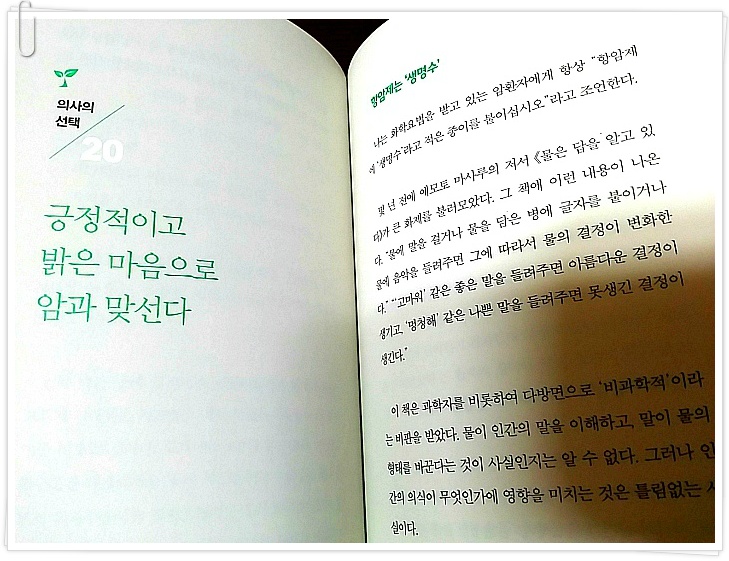 의사의
선택
20
긍정적이고
밝은 마음으로
암과 맞선다
항암제는 '생명수'
나는 화학요법을 받고 있는 암환자에게 항상 "항암제
에 '생명수'라고 적은 종이를 붙이십시오"라고 조언한다.
몇 년 전에 에모토 마사루의 저서 《물은 답을 알고 있
다》가 큰 화제를 불러모았다. 그 책에 이런 내용이 나온
다. "물에 말을 걸거나 물을 담은 병에 글자를 붙이거나
물에 음악을 들려주면 그에 따라서 물의 결정이 변화한
다." "'고마워' 같은 좋은 말을 들려주면 아름다운 결정이
생기고, '멍청해' 같은 나쁜 말을 들려주면 못생긴 결정이
생긴다."
이 책은 과학자를 비롯하여 다방면으로 '비과학적'이라
는 비판을 받았다. 물이 인간의 말을 이해하고, 말이 물의
형태를 바꾼다는 것이 사실인지는 알 수 없다. 그러나 인
간의 의식이 무엇인가에 영향을 미치는 것은 틀림없는 사
실이다.